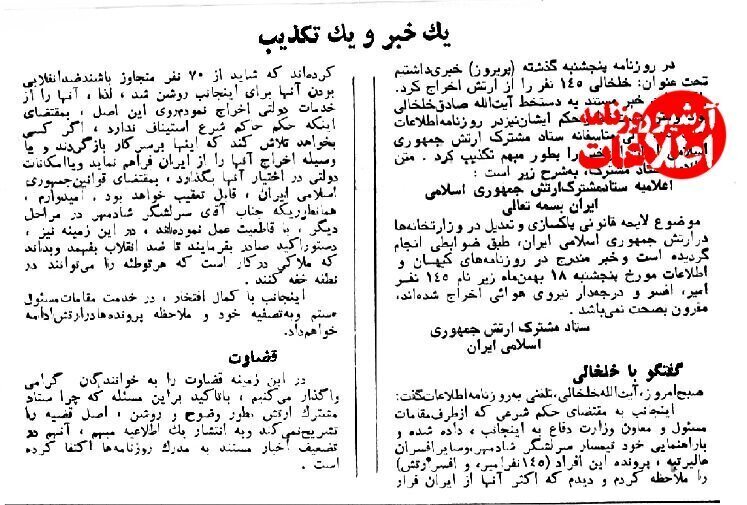 یك خبر و یك تكذیب
در روزنامه پنجشنبه گذشته (پریروز) خبری داشتیم
تحت عنوان: خلخالی ۱۴۵ نفر را از ارتش اخراج کرد.
خبر مستند به دستخط آیت‌الله صادق خلخالی
بود و متن حکم ایشان نیز در روزنامه اطلاعات
ولی متاسفانه ستاد مشترک ارتش جمهوری
اسلامی را بطور مبهم تکذیب کرد . متن
ستاد مشترک، به‌شرح زیر است :
اعلامیه ستاد مشترک ارتش جمهوری اسلامی
ایران بسمه تعالی
موضوع لایحه قانونی پاکسازی و تعدیل در وزارتخانه‌ها
در ارتش جمهوری اسلامی ایران، طبق ضوابطی انجام
گردیده است و خبر مندرج در روزنامه‌های کیهان و
اطلاعات مورخ پنجشنبه ۱۸ بهمن‌ماه زیر نام ۱۴۵ نفر
امیر، افسر و درجه‌دار نیروی هوائی اخراج شده‌اند،
مقرون بصحت نمی‌باشد .
ستاد مشترک ارتش جمهوری
اسلامی ایران
گفتگو با خلخالی
صبح امروز، آیت‌الله خلخالی، تلفنی به روزنامه اطلاعات گفت:
اینجانب به مقتضای حکم شرعی که از طرف مقامات
مسئول و معاون وزارت دفاع به اینجانب ، داده شده و
باراهنمایی خود تیمسار سرلشگر شادمهر، و سایر افسران
عالیرتبه ، پرونده این افراد (۱۴۵ نفر امیر، و افسر ارتش)
را ملاحظه کردم و دیدم که اکثر آنها از ایران فرار
کرده‌اند که شاید از ۷۰ نفر متجاوز باشند ضد انقلابی
بودن آنها برای اینجانب روشن شد ، لذا ، آنها را از
خدمات دولتی اخراج نمودم روی این اصل ، بمقتضای
اینکه حکم حاکم شرع استیناف ندارد ، اگر کسی
بخواهد تلاش کند که اینها برسر کار بازگردند و یا
وسیله اخراج آنها را از ایران فراهم نماید و یا امکانات
دولتی در اختیار آنها بگذارد ، بمقتضای قوانین جمهوری
اسلامی ایران ، قابل تعقیب خواهد بود . امیدوارم ،
همانطوریکه جناب آقای سرلشگر شادمهر در مراحل
دیگر ، با قاطعیت عمل نموده‌اند ، در این زمینه نیز ،
دستور اکید صادر بفرمایند تا ضد انقلاب بفهمد و بداند
که ملاکی در کار است که هر توطئه را می‌توانند در
نطفه خفه کنند .
اینجانب با کمال افتخار ، در خدمت مقامات مسئول
هستم و به تصفیه خود و ملاحظه پرونده‌ها در ارتش ادامه
خواهم داد.
قضاوت
در این زمینه قضاوت را به خوانندگان گرامی
واگذار می‌کنیم ، با تاکید بر این مسئله که چرا ستاد
مشترک ارتش بطور وضوح و روشن ، اصل قضیه را
تشریح نمی‌کند و به انتشار یك اطلاعیه مبهم ، آنهم در
تضعیف اخبار مستند به مدرک روزنامه‌ها اکتفا کرده
است .
آرشیو روزنامه
اطلاعات